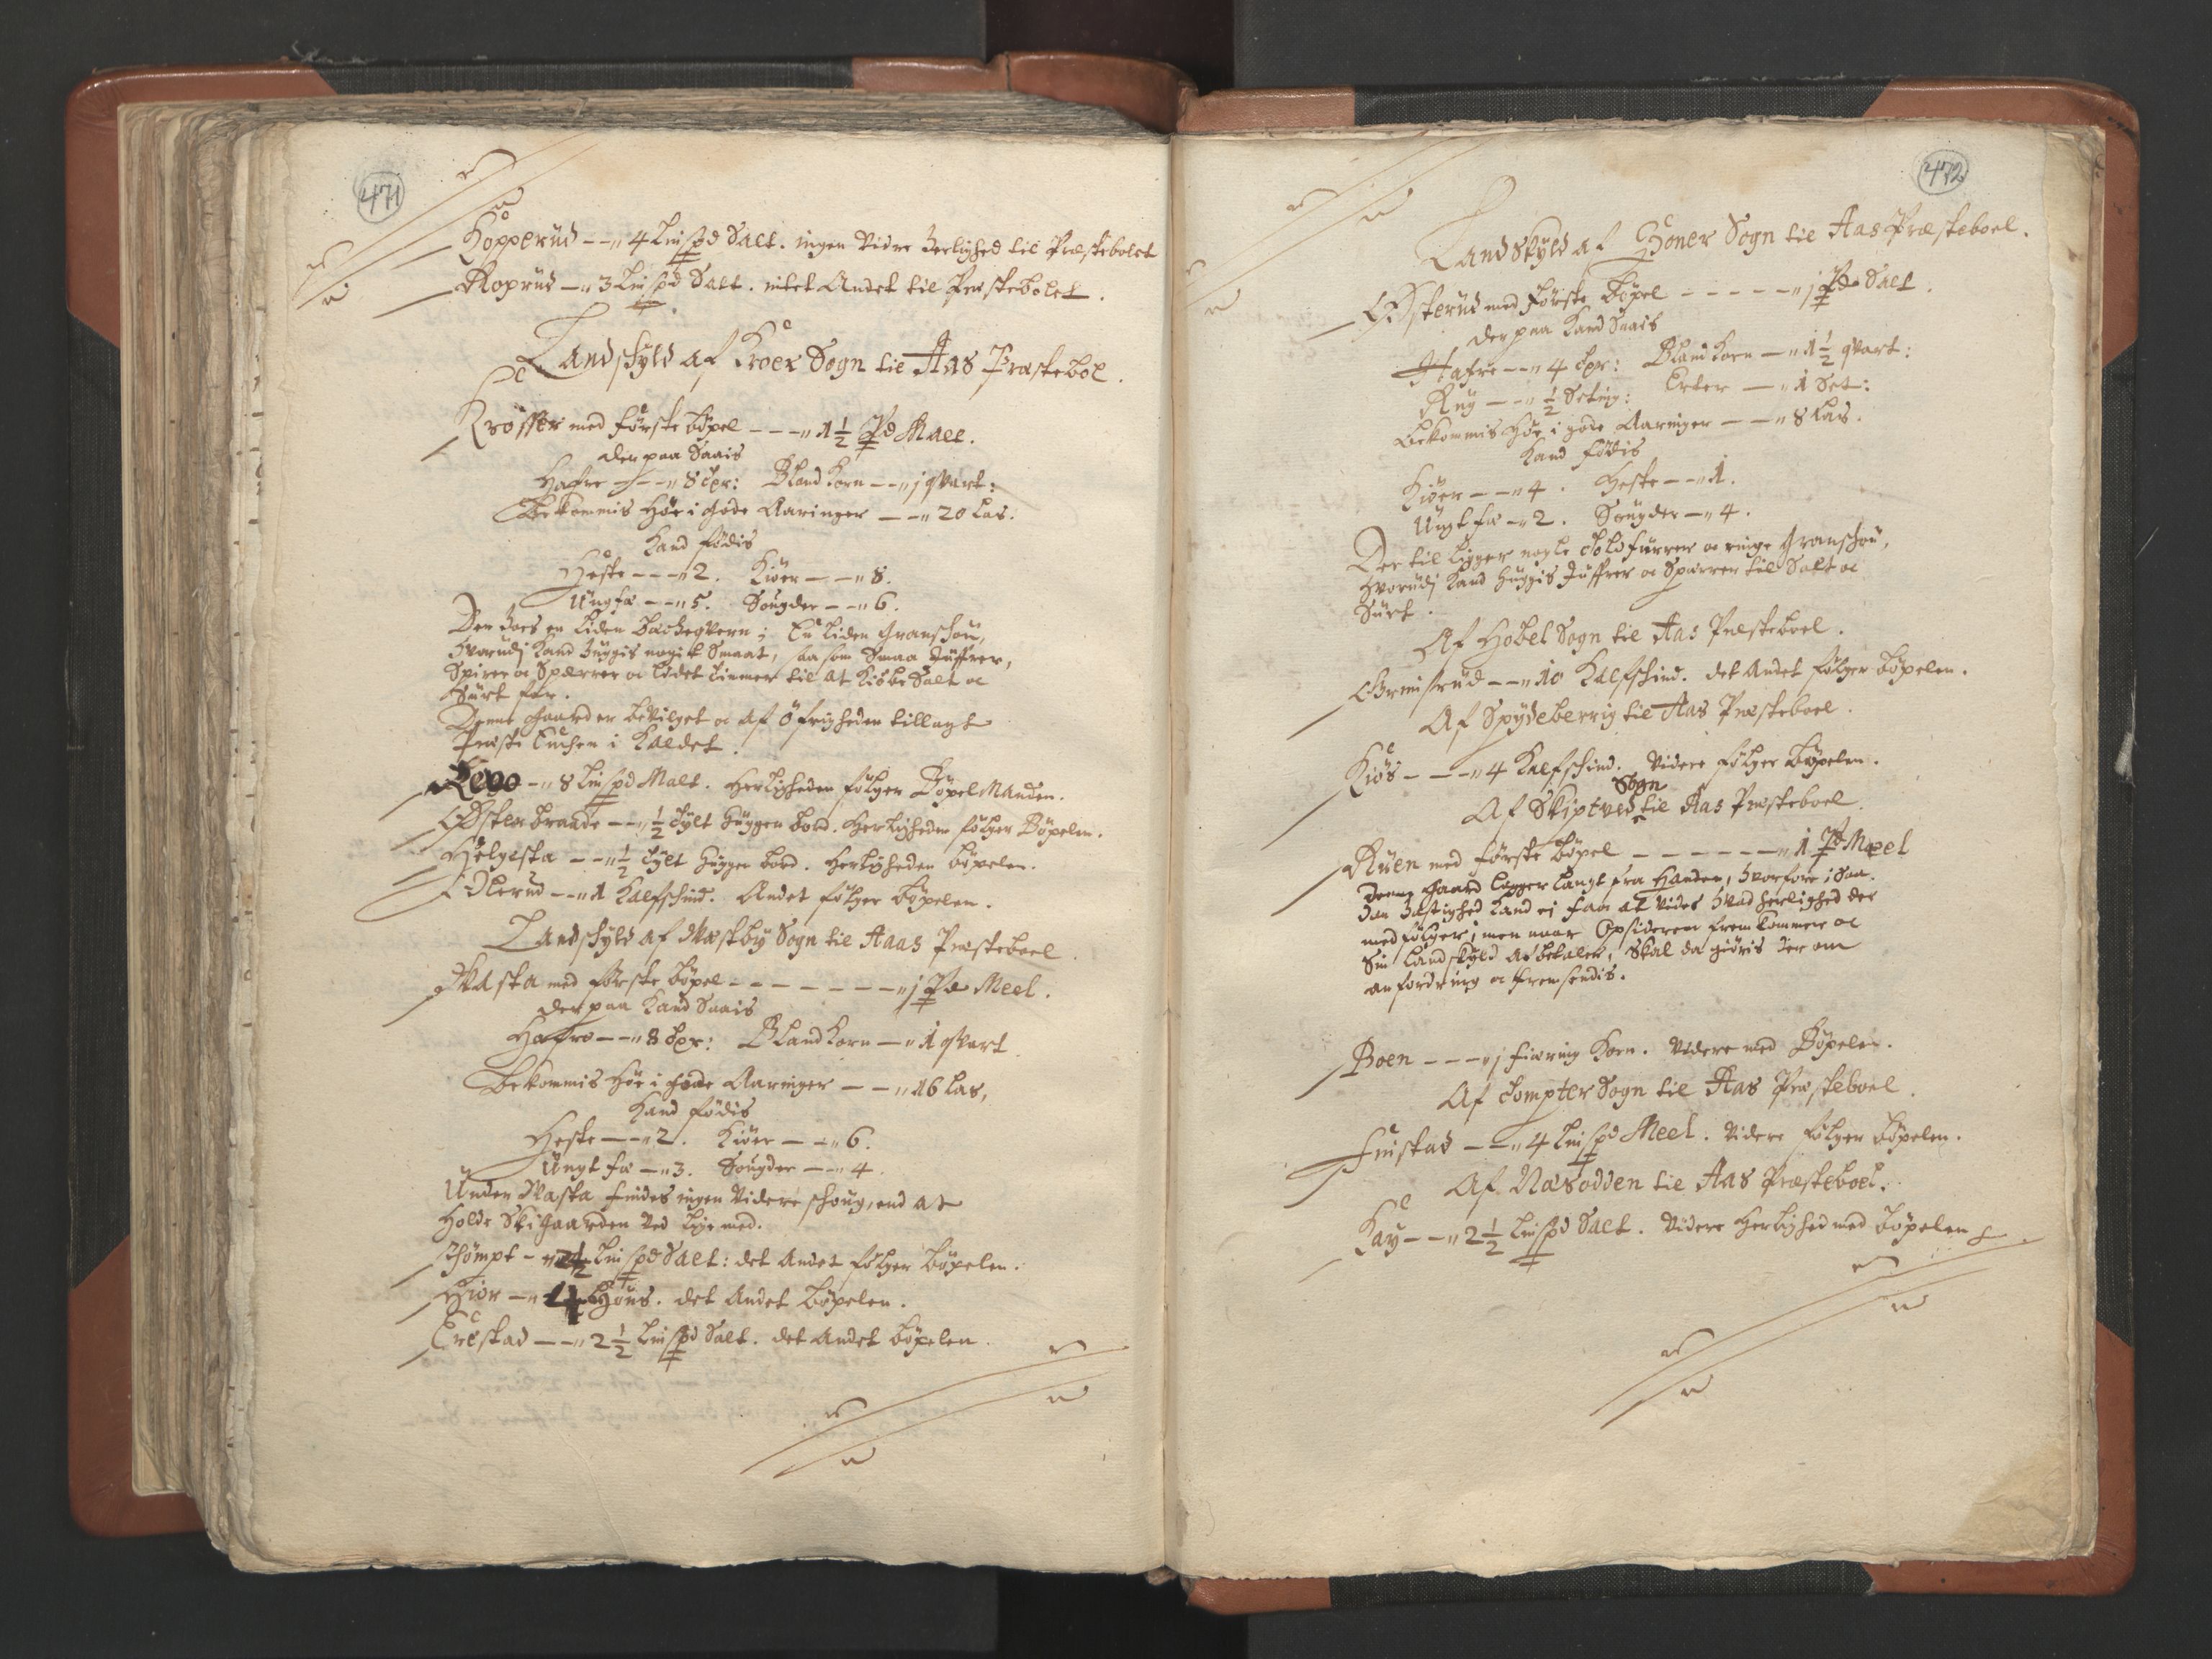 471
Kopperud – – „ 4 Lis℔d Salt. ingen Vidre Herlighed til Præstebolet
Roprud – „ 3 Lis℔d Salt. intet Andet til Præstebolet.
Landskyld af Kroer Sogn til Aas Præstebol.
Krosser med første böxel – – – „ 1 1/2 ℔d Malt.
der paa Saais
Hafre – – – „ 8 tpr: Bland Korn – – „ j qvart:
Bekommis Höe i gode Aaringer – – „ 20 Las.
Kand fødis
Heste – – – „ 2. Kiöer – – „ 8.
Ungfæ – – „ 5. Sougder – – „ 6.
Der hoes en liden becheqvern; En liden Granschou,
Hvorudj Kand huggis nogit Smaat, saa som Smaa Juffrer,
Spirer oc Spærrer oc lidet timmer til at Kiöbe Salt oc
Surt for.
Denne Gaard er bevilget oc af Öfrigheden tillagt
Præste Enchen i Kaldet.
– „ 8 Lis℔d Malt. Herligheden följer Böxel Manden.
Österbraade – – „ 1/2 tylt huggen bord. Herligheden fölger Böxelen.
Helgesta – – „ 1/2 tylt hugger bord. Herligheden böxelen.
Idlerud – – „ 1 Kalfschind. Andet fölger böxelen.
Landschyld af Næstby Sogn til Aaas Præsteboel.
Næsta med første böxel – – – – – – – „ j ℔d Meel.
der paa Kand Saais
Hafre – – „ 8 tpr: Bland Korn – „ 1 qvart
Bekommis Höe i gode Aaringer – – „ 16 Las,
Kand fødis
Heste – – „ 2. Kiöer – – „ 6.
Ungt fæ – „ 3. Sougder – – „ 4.
Under Næsta findes ingen Videre schoug, end at
Holde Skigaarden ved lige med.
Schömpt – „ 2 1/2 Lis℔d Salt: det Andet fölger böxelen.
Hior – „ 4 Höns. det Andet böxelen.
Erestad – – „ 2 1/2 Lis℔d Salt. det Andet böxelen.
472
Landskyld af Garder Sogn til Aas Præsteboel.
Österud med første böxel – – – – – „ j ℔d Salt.
der paa Kand Saais
Hafre – – „ 4 tpr: Bland Korn – „ 1 1/2 qvart:
Rug – – „ 1/2 Seting: Erter – – „ 1 Set:
Bekommis Höe i gode Aaringer – – „ 8 Las.
Kand födis
Kiöer – – „ 4. Heste – – „ 1.
Ungt fæ – „ 2. Sougder – „ 4.
Der til ligger nogle told furrer oc ringe Granschou,
Hvorudj Kand huggis Juffrer oc Sparrer til Salt oc
Surt.
Af Hobel Sogn til Aas Præsteboel.
Gremisrud – – „ 10 Kalfschind. det Andet fölger böxelen.
Af Spydeberrig til Aas Præsteboel.
Kiös – – – „ 4 Kalfschind. Videre fölger Böxelen.
Sogn
Af Skiptved til Aas Præsteboel.
Ruen med förste böxel – – – – – – – „ 1 ℔d Meel
Denne Gaard ligger langt fra Handen, hvorfore i saa-
dan Hastighed Kand ej faa at vides hvad herlighed der
med fölger; men naar Opsideren frem kommer oc
Sin Landskyld at betaler, Skal da giöris der om
anfordring oc fremsendis.
Boen – – – „ j fiæring Korn. Videre med Böxelen.
Af Tompter Sogn til Aas Præsteboel.
Finstad – – „ 4 Lis℔d Meel. Videre fölger böxelen.
Af Næsodden til Aas Præsteboel.
Kay – – „ 2 1/2 Lis℔d Salt. Videre Herlighed med böxelen